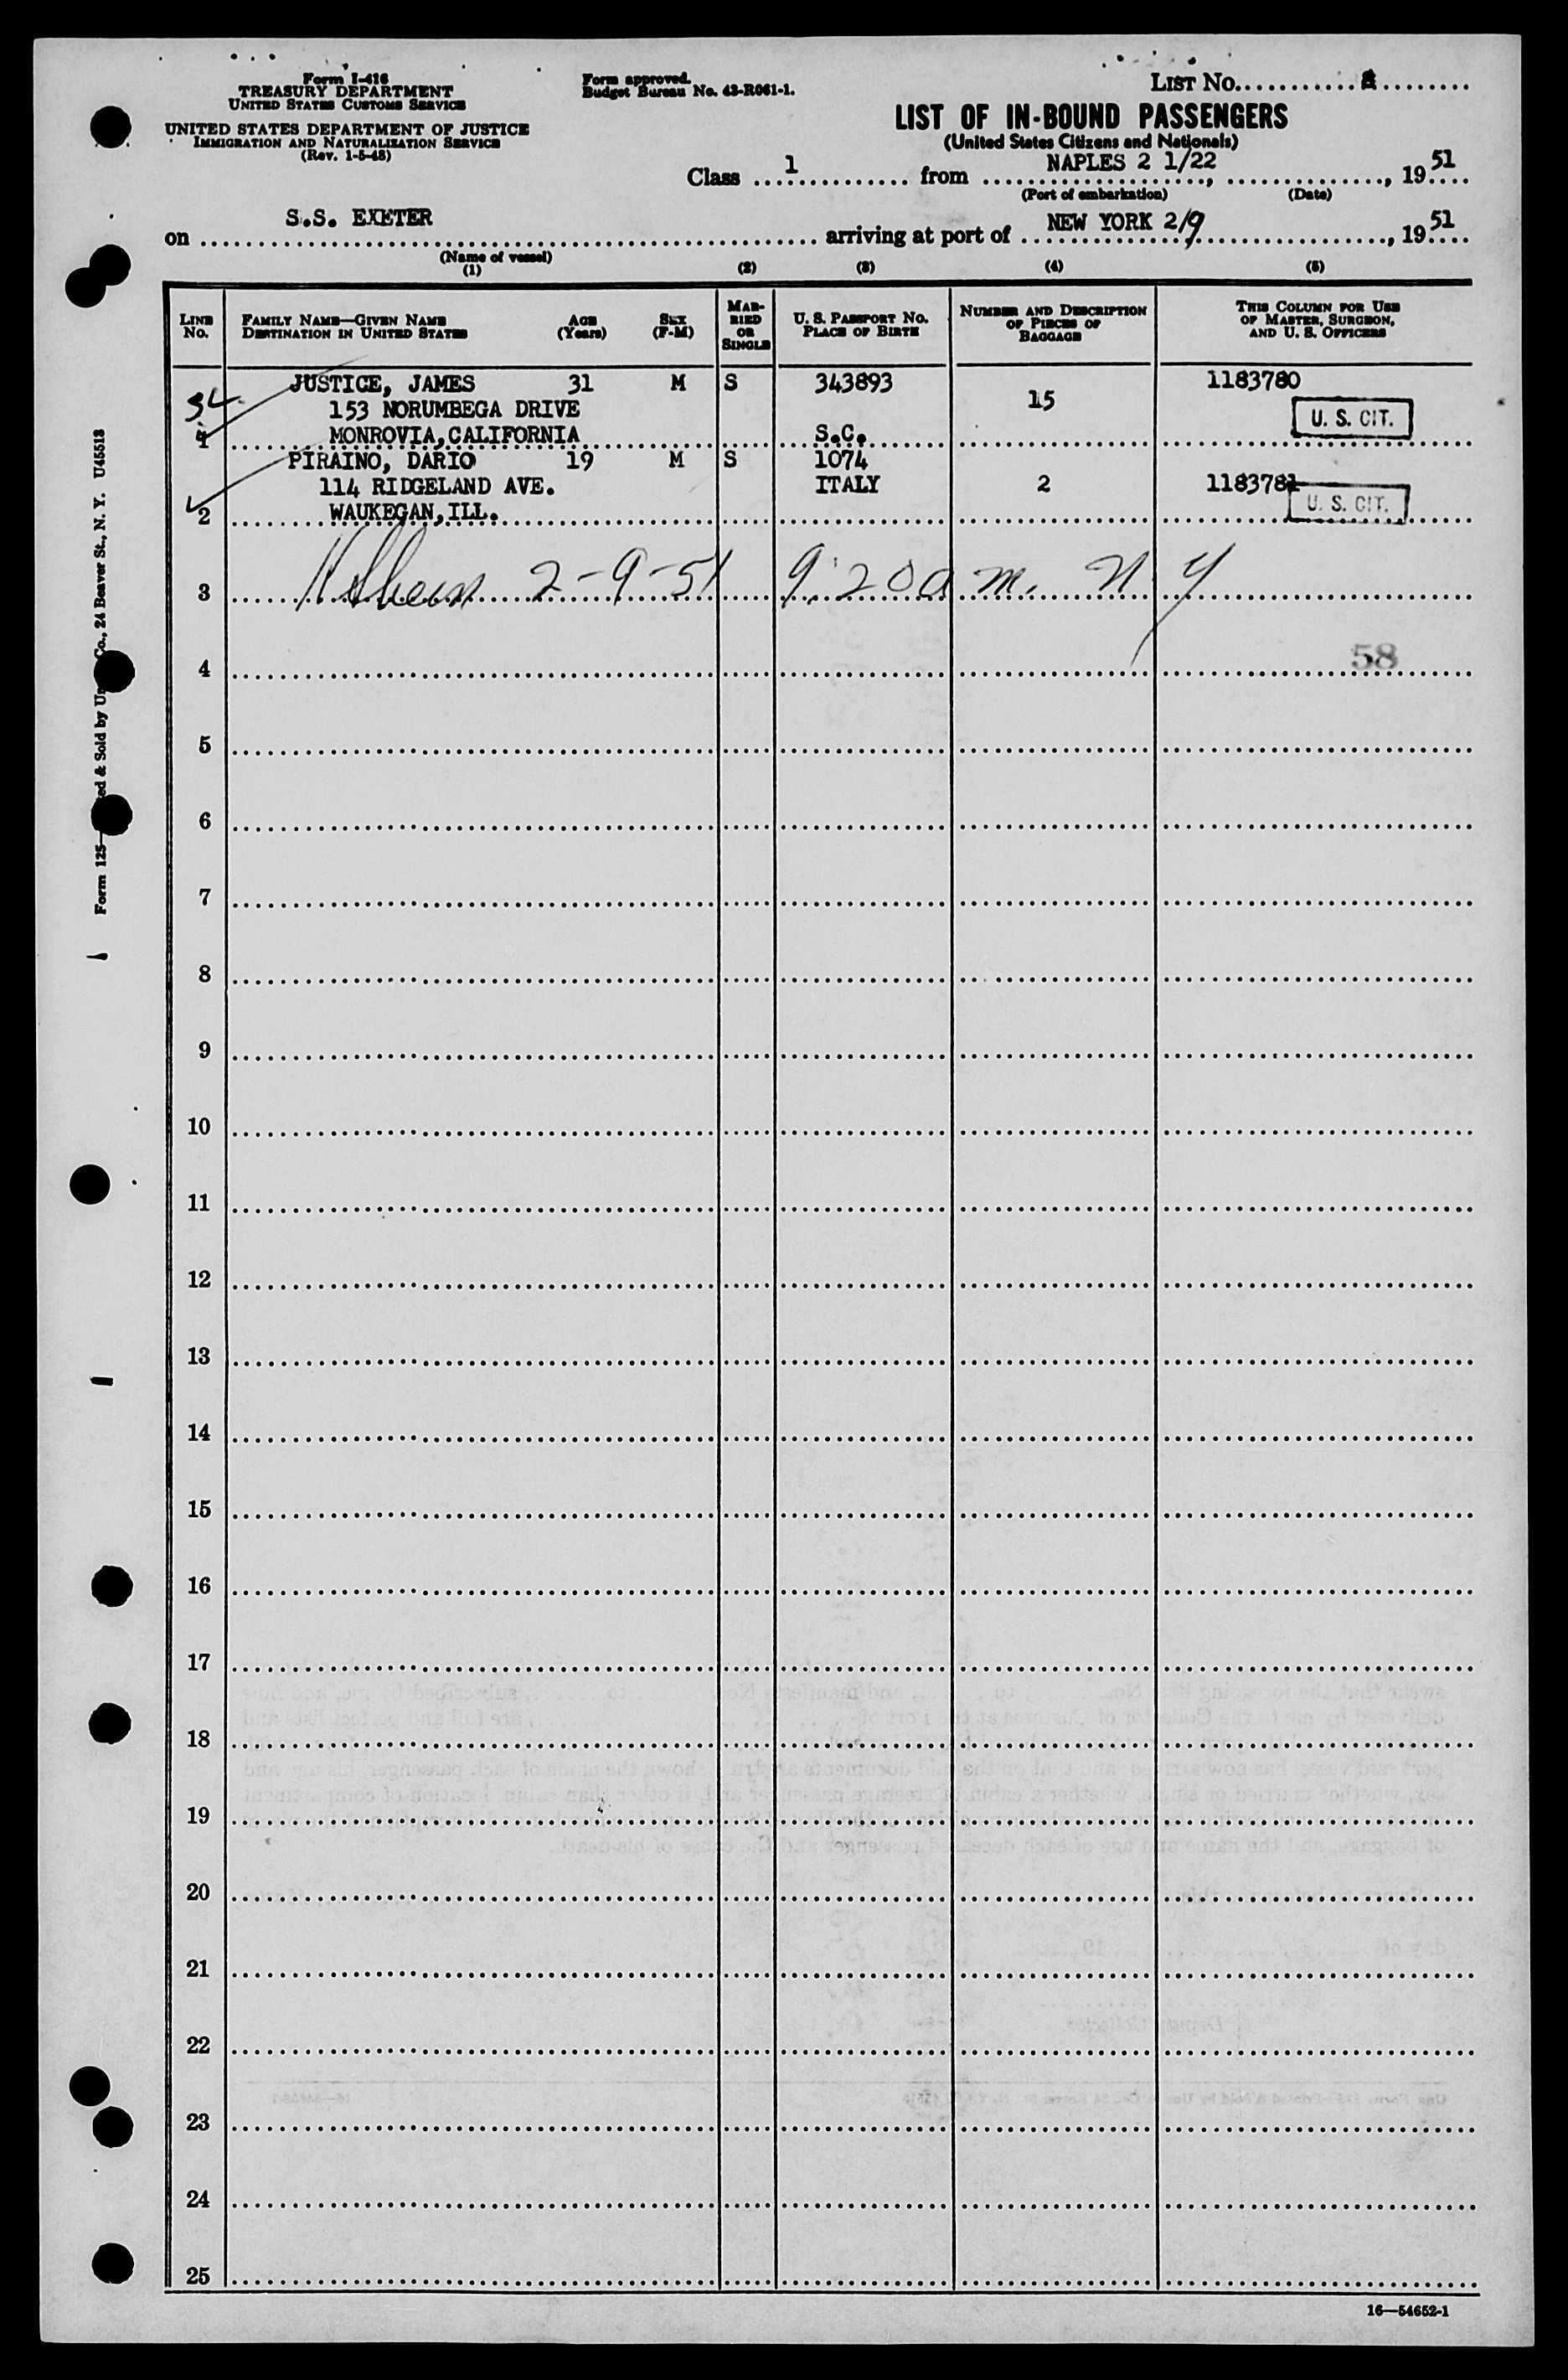 Form I-416
TREASURY DEPARTMENT
UNITED STATES CUSTOMS SERVICE
UNITED STATES DEPARTMENT OF JUSTICE
IMMIGRATION AND NATURALIZATION SERVICE
(Rev. 1-5-48)
Form approved.
Budget Bureau No. 43-R061-1.
LIST No.
LIST OF IN-BOUND PASSENGERS
(United States Citizens and Nationals)
Class 1 from NAPLES 2 1/22, 1951
(Port of embarkation) (Date)
on S.S. EXETER arriving at port of NEW YORK 2/9, 1951
(Name of vessel)
(1) (2) (3) (4) (5)
LINE No.
FAMILY NAME—GIVEN NAME
DESTINATION IN UNITED STATES
AGE (Years)
SEX (F-M)
MARRIED OR SINGLE
U. S. PASSPORT No.
PLACE OF BIRTH
NUMBER AND DESCRIPTION OF PIECES OF BAGGAGE
THIS COLUMN FOR USE OF MASTER, SURGEON, AND U. S. OFFICERS
JUSTICE, JAMES 31 M S 343893 1183780
153 NORUMBEGA DRIVE 15
1 MONROVIA, CALIFORNIA S.C. U. S. CIT.
PIRAINO, DARIO 19 M S 1074
114 RIDGELAND AVE. ITALY 2 1183781
2 WAUKEGAN, ILL. U. S. CIT.
3 2-9-51 9:20 a m. N Y
4 58
5
6
7
8
9
10
11
12
13
14
15
16
17
18
19
20
21
22
23
24
25
16—54652-1
Form 125— ed & Sold by Un Co., 24 Beaver St., N. Y. U45513